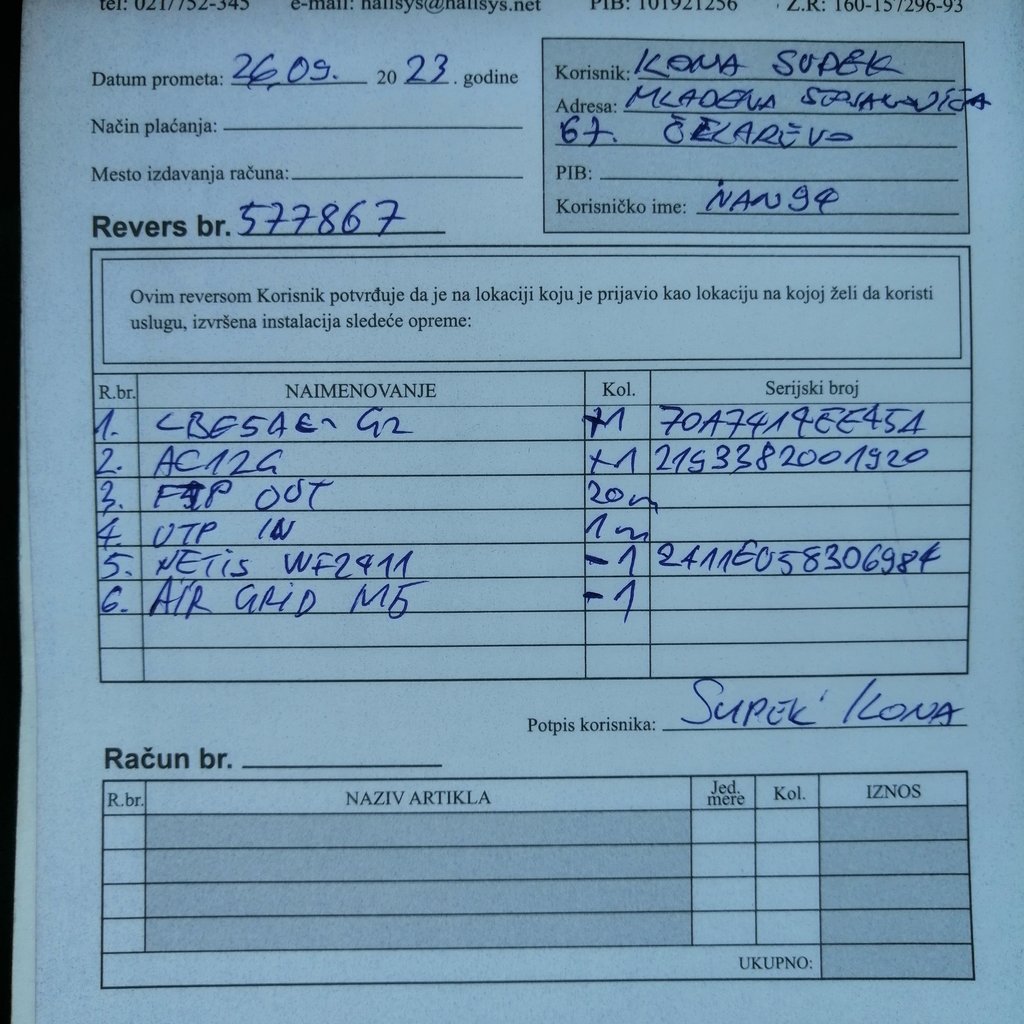 tel: 021/752-345 e-mail: hallsys@hallsys.net PIB: 101921256 Z.R: 160-157296-93
Datum prometa: 26.09. 20 23. godine
Način plaćanja:
Mesto izdavanja računa:
Revers br. 577867
Korisnik: KONA SUPEK
Adresa: MLADENA STOJANOVIĆA
67. ČELAREVO
PIB:
Korisničko ime: NAN94
Ovim reversom Korisnik potvrđuje da je na lokaciji koju je prijavio kao lokaciju na kojoj želi da koristi
uslugu, izvršena instalacija sledeće opreme:
R.br. NAIMENOVANJE Kol. Serijski broj
1. LBE5AC G2 +1 70A7414EE45A
2. AC12G +1 2193382001920
3. FTP OUT 20m
4. UTP IN 1m
5. NETiS WF2411 -1 2411E058306984
6. AIR GRID M5 -1
Potpis korisnika: SUPEK KONA
Račun br.
R.br. NAZIV ARTIKLA Jed. mere Kol. IZNOS
UKUPNO: